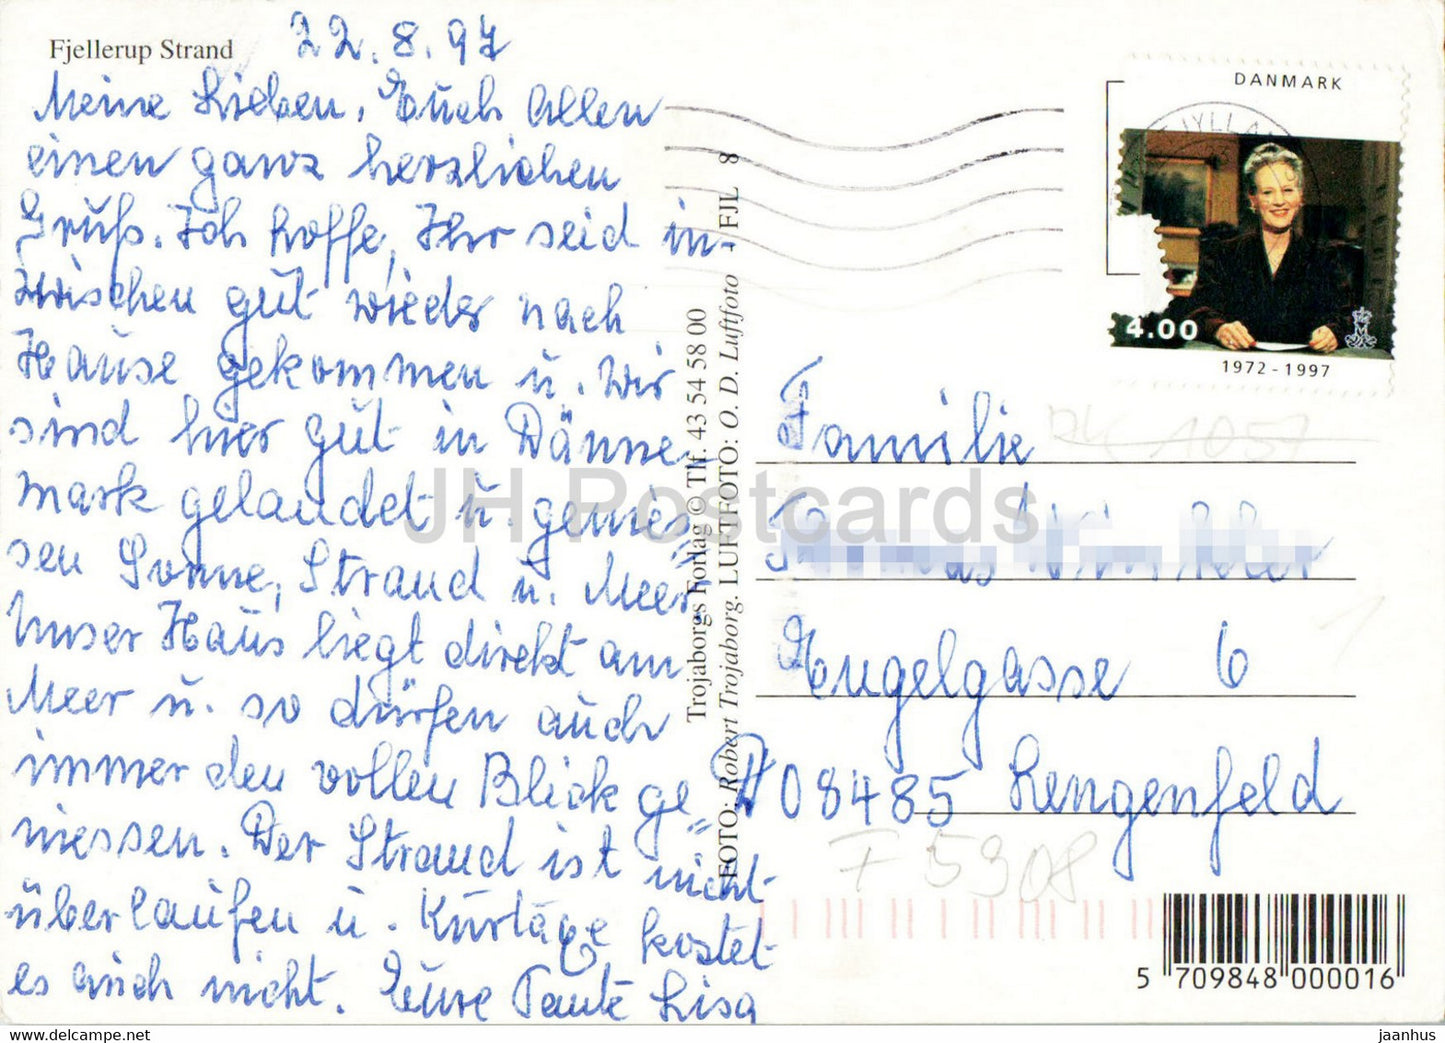 Fjellerup Strand
22.8.97
Meine Lieben, Euch Allen
einen ganz herzlichen
Gruß. Ich hoffe, Ihr seid in-
zwischen gut wieder nach
Hause gekommen u. wir
sind hier gut in Däne-
mark gelandet u. genies-
sen Sonne, Strand u. Meer.
Unser Haus liegt direkt am
Meer u. so dürfen auch
immer den vollen Blick ge-
niessen. Der Strand ist nicht
überlaufen u. Kurtaxe kostet
es auch nicht. Eure Tante Lisa
Trojaborgs Forlag © Tlf. 43 54 58 00
FOTO: Robert Trojaborg. LUFTFOTO: O. D. Luftfoto - FJL 8
DANMARK
4.00
1972 - 1997
Familie
Engelgasse 6
D 08485 Lengenfeld
F 5908
5 709848 000016
JH Postcards
www.delcampe.net
jaanhus